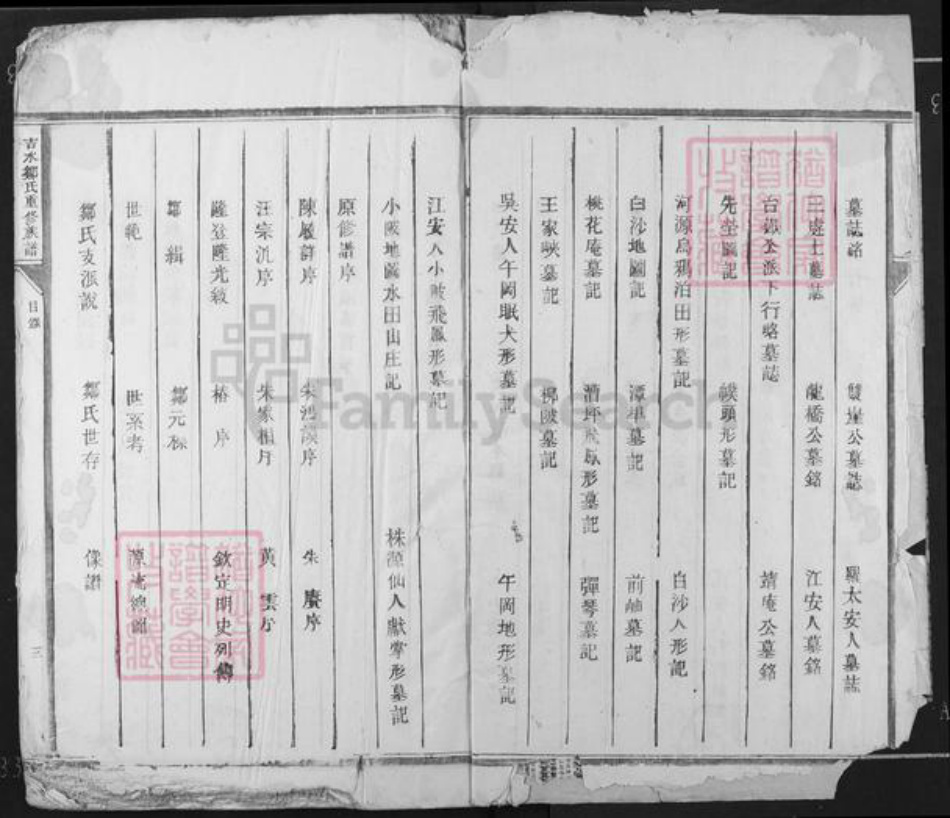 墓誌銘　雙崖公墓誌　羅太安人墓誌
三處士墓誌　龍橋公墓銘　江安人墓銘
公派下行略墓誌　靖庵公墓銘
先塋圖記　幞頭形墓記
河源烏鴉泊田形墓記　白沙人形記
白沙地圖記　潭埠墓記　前岫墓記
桃花庵墓記　形墓記　彈琴墓記
王家峽墓記　梆陂墓記
吳安人午岡眠犬形墓記　午岡地形墓記
江安人小陂飛鳳形墓記
小陂地圖水田山庄記　株源仙人獻掌形墓記
原修譜序
陳嚴譜序　朱鴻謨序　朱賡序
汪宗汎序　朱家相序　黃雲序
隆登隆光敘　椿序　欽定明史列傳
鄒緝　鄒元標
世範　世系考　源流總圖
鄒氏支派說　鄒氏世存　像讚
吉水鄒氏重修族譜　目錄　三
FamilySearch